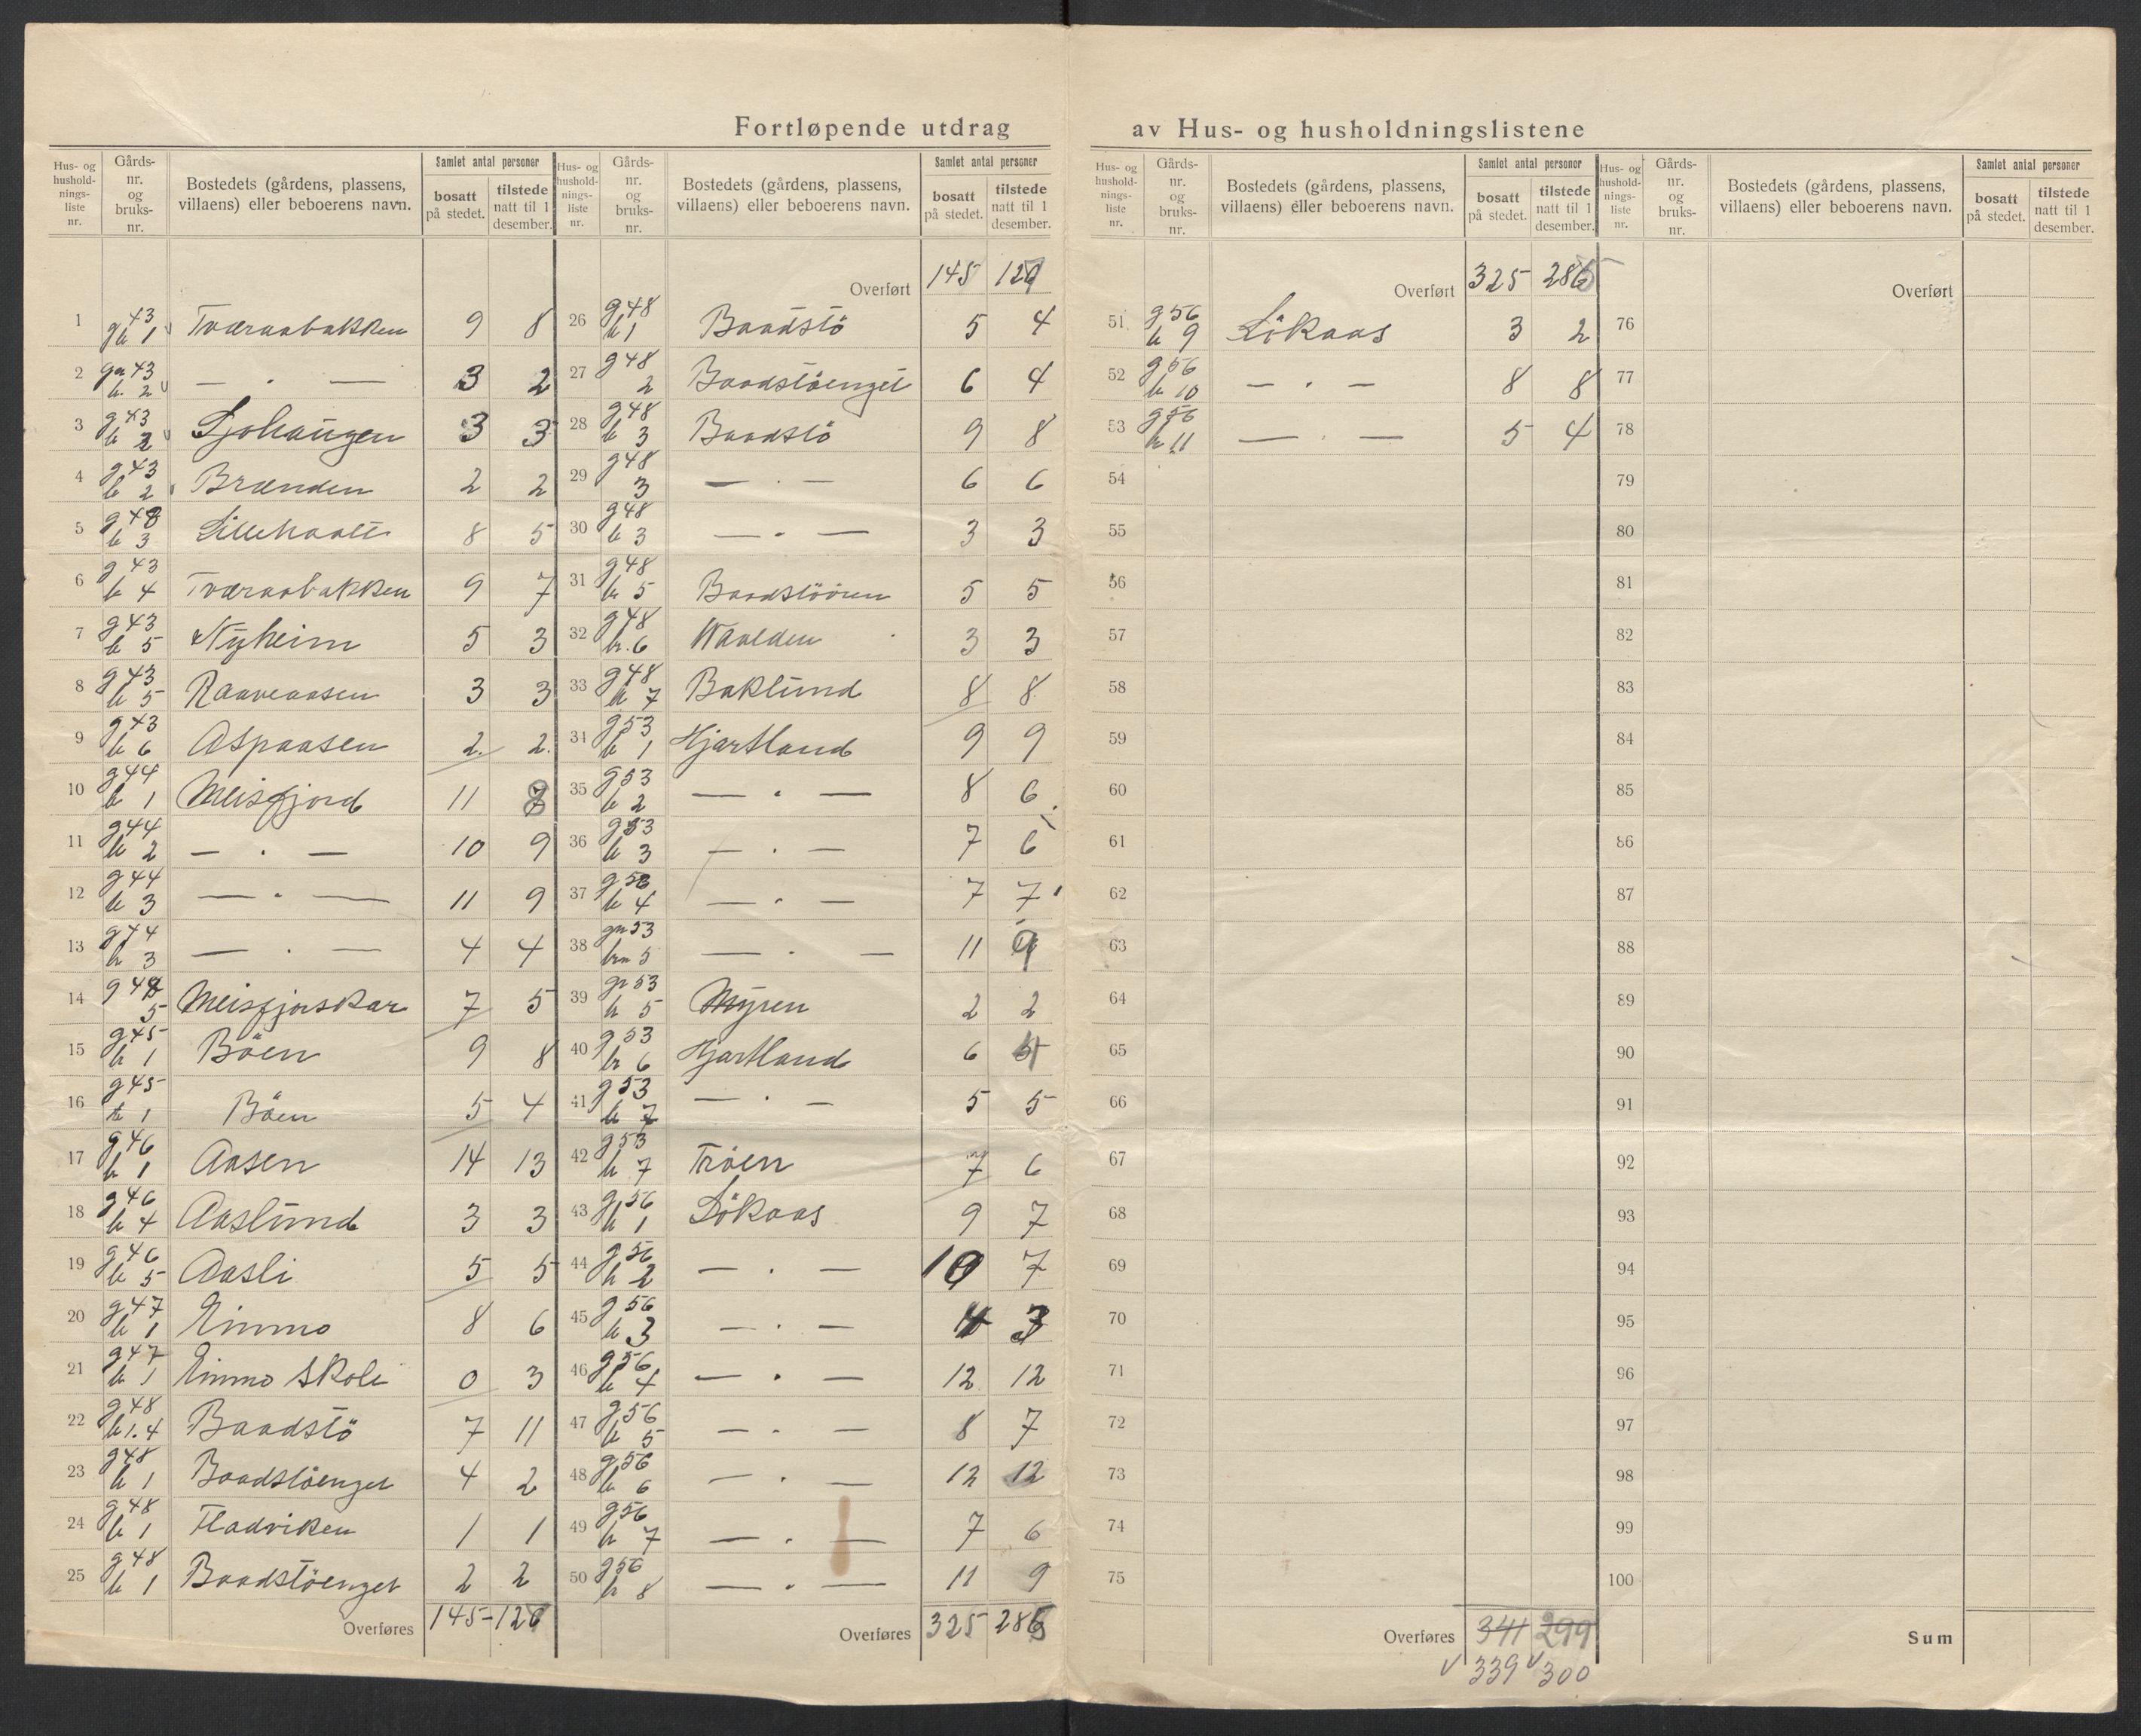 Fortløpende utdrag av Hus- og husholdningslistene
Hus- og hushold- nings- liste nr. | Gårds- nr. og bruks- nr. | Bostedets (gårdens, plassens, villaens) eller beboerens navn. | Samlet antal personer | bosatt på stedet. | tilstede natt til 1 desember.
1 g 43 b 1 Tværaabakken 9 8
2 gn 43 b. 2 — . — 3 2
3 g 43 b 2 Sjohaugen 3 3
4 g 43 b 2 Brænden 2 2
5 g 43 b 3 Lillehaalt 8 5
6 g 43 b 4 Tværaabakken 9 7
7 g 43 b 5 Nyheim 5 3
8 g 43 b 5 Raaveaasen 3 3
9 g 43 b 6 Aspaasen 2. 2.
10 g 44 b 1 Meisfjord 11 8
11 g 44 b 2 — . — 10 9
12 g 44 b 3 — . — 11 9
13 g 44 b 3 — . — 4 4
14 g 44 5 Meisfjorskar 7 5
15 g 45 b 1 Böen 9 8
16 g 45 b 1 Böen 5 4
17 g 46 b 1 Aasen 14 13
18 g 46 b 4 Aaslund 3 3
19 g 46 b 5 Aasli 5 5
20 g 47 b 1 Einmo 8 6
21 g 47 b 1 Einmo Skole 0 3
22 g 48 b 1.4 Baadstö 7 11
23 g 48 b 1 Baadstöenget 4 2
24 g 48 b 1 Fladviken 1 1
25 g 48 b 1 Baadstöenget 2 2
Overføres 145 - 126
Hus- og hushold- nings- liste nr. | Gårds- nr. og bruks- nr. | Bostedets (gårdens, plassens, villaens) eller beboerens navn. | Samlet antal personer | bosatt på stedet. | tilstede natt til 1 desember.
Overført 145
26 g 48 b 1 Baadstö 5 4
27 g 48 2 Baadstöenget 6 4
28 g 48 b 3 Baadstö 9 8
29 g 48 3 — . — 6 6
30 g 48 b 3 — . — 3 3
31 g 48 b 5 Baadstöören 5 5
32 g 48 b. 6 Waalden 3 3
33 g 48 b 7 Baklund 8 8
34 g 53 b 1 Hjartland 9 9
35 g 53 b 2 — . — 8 6
36 g 53 b 3 — . — 7 6
37 g 53 b 4 — . — 7 7
38 gn 53 brn 5 — . — 11 9
39 gr 53 b 5 Myren 2 2
40 g 53 br 6 Hjartland 6
41 g 53 b 7 — . — 5 5
42 g 53 b 7 Tröen 7 6
43 g 56 b 1 Lökaas 9 7
44 g 56 b 2 — . — 10 7
45 g 56 b 3 — . — 4 3
46 g 56 b 4 — . — 12 12
47 g 56 b 5 — . — 8 7
48 g 56 b 6 — . — 12 12
49 g 56 b 7 — . — 7 6
50 g 56 b 8 — . — 11 9
Overføres 325 286
Hus- og hushold- nings- liste nr. | Gårds- nr. og bruks- nr. | Bostedets (gårdens, plassens, villaens) eller beboerens navn. | Samlet antal personer | bosatt på stedet. | tilstede natt til 1 desember.
Overført 325 286
51 g 56 b 9 Lökaas 3 2
52 g 56 b 10 — . — 8 8
53 g 56 b 11 — . — 5 4
54
55
56
57
58
59
60
61
62
63
64
65
66
67
68
69
70
71
72
73
74
75
Overføres 341 299
v 339 v 300
Hus- og hushold- nings- liste nr. | Gårds- nr. og bruks- nr. | Bostedets (gårdens, plassens, villaens) eller beboerens navn. | Samlet antal personer | bosatt på stedet. | tilstede natt til 1 desember.
Overført
76
77
78
79
80
81
82
83
84
85
86
87
88
89
90
91
92
93
94
95
96
97
98
99
100
Sum